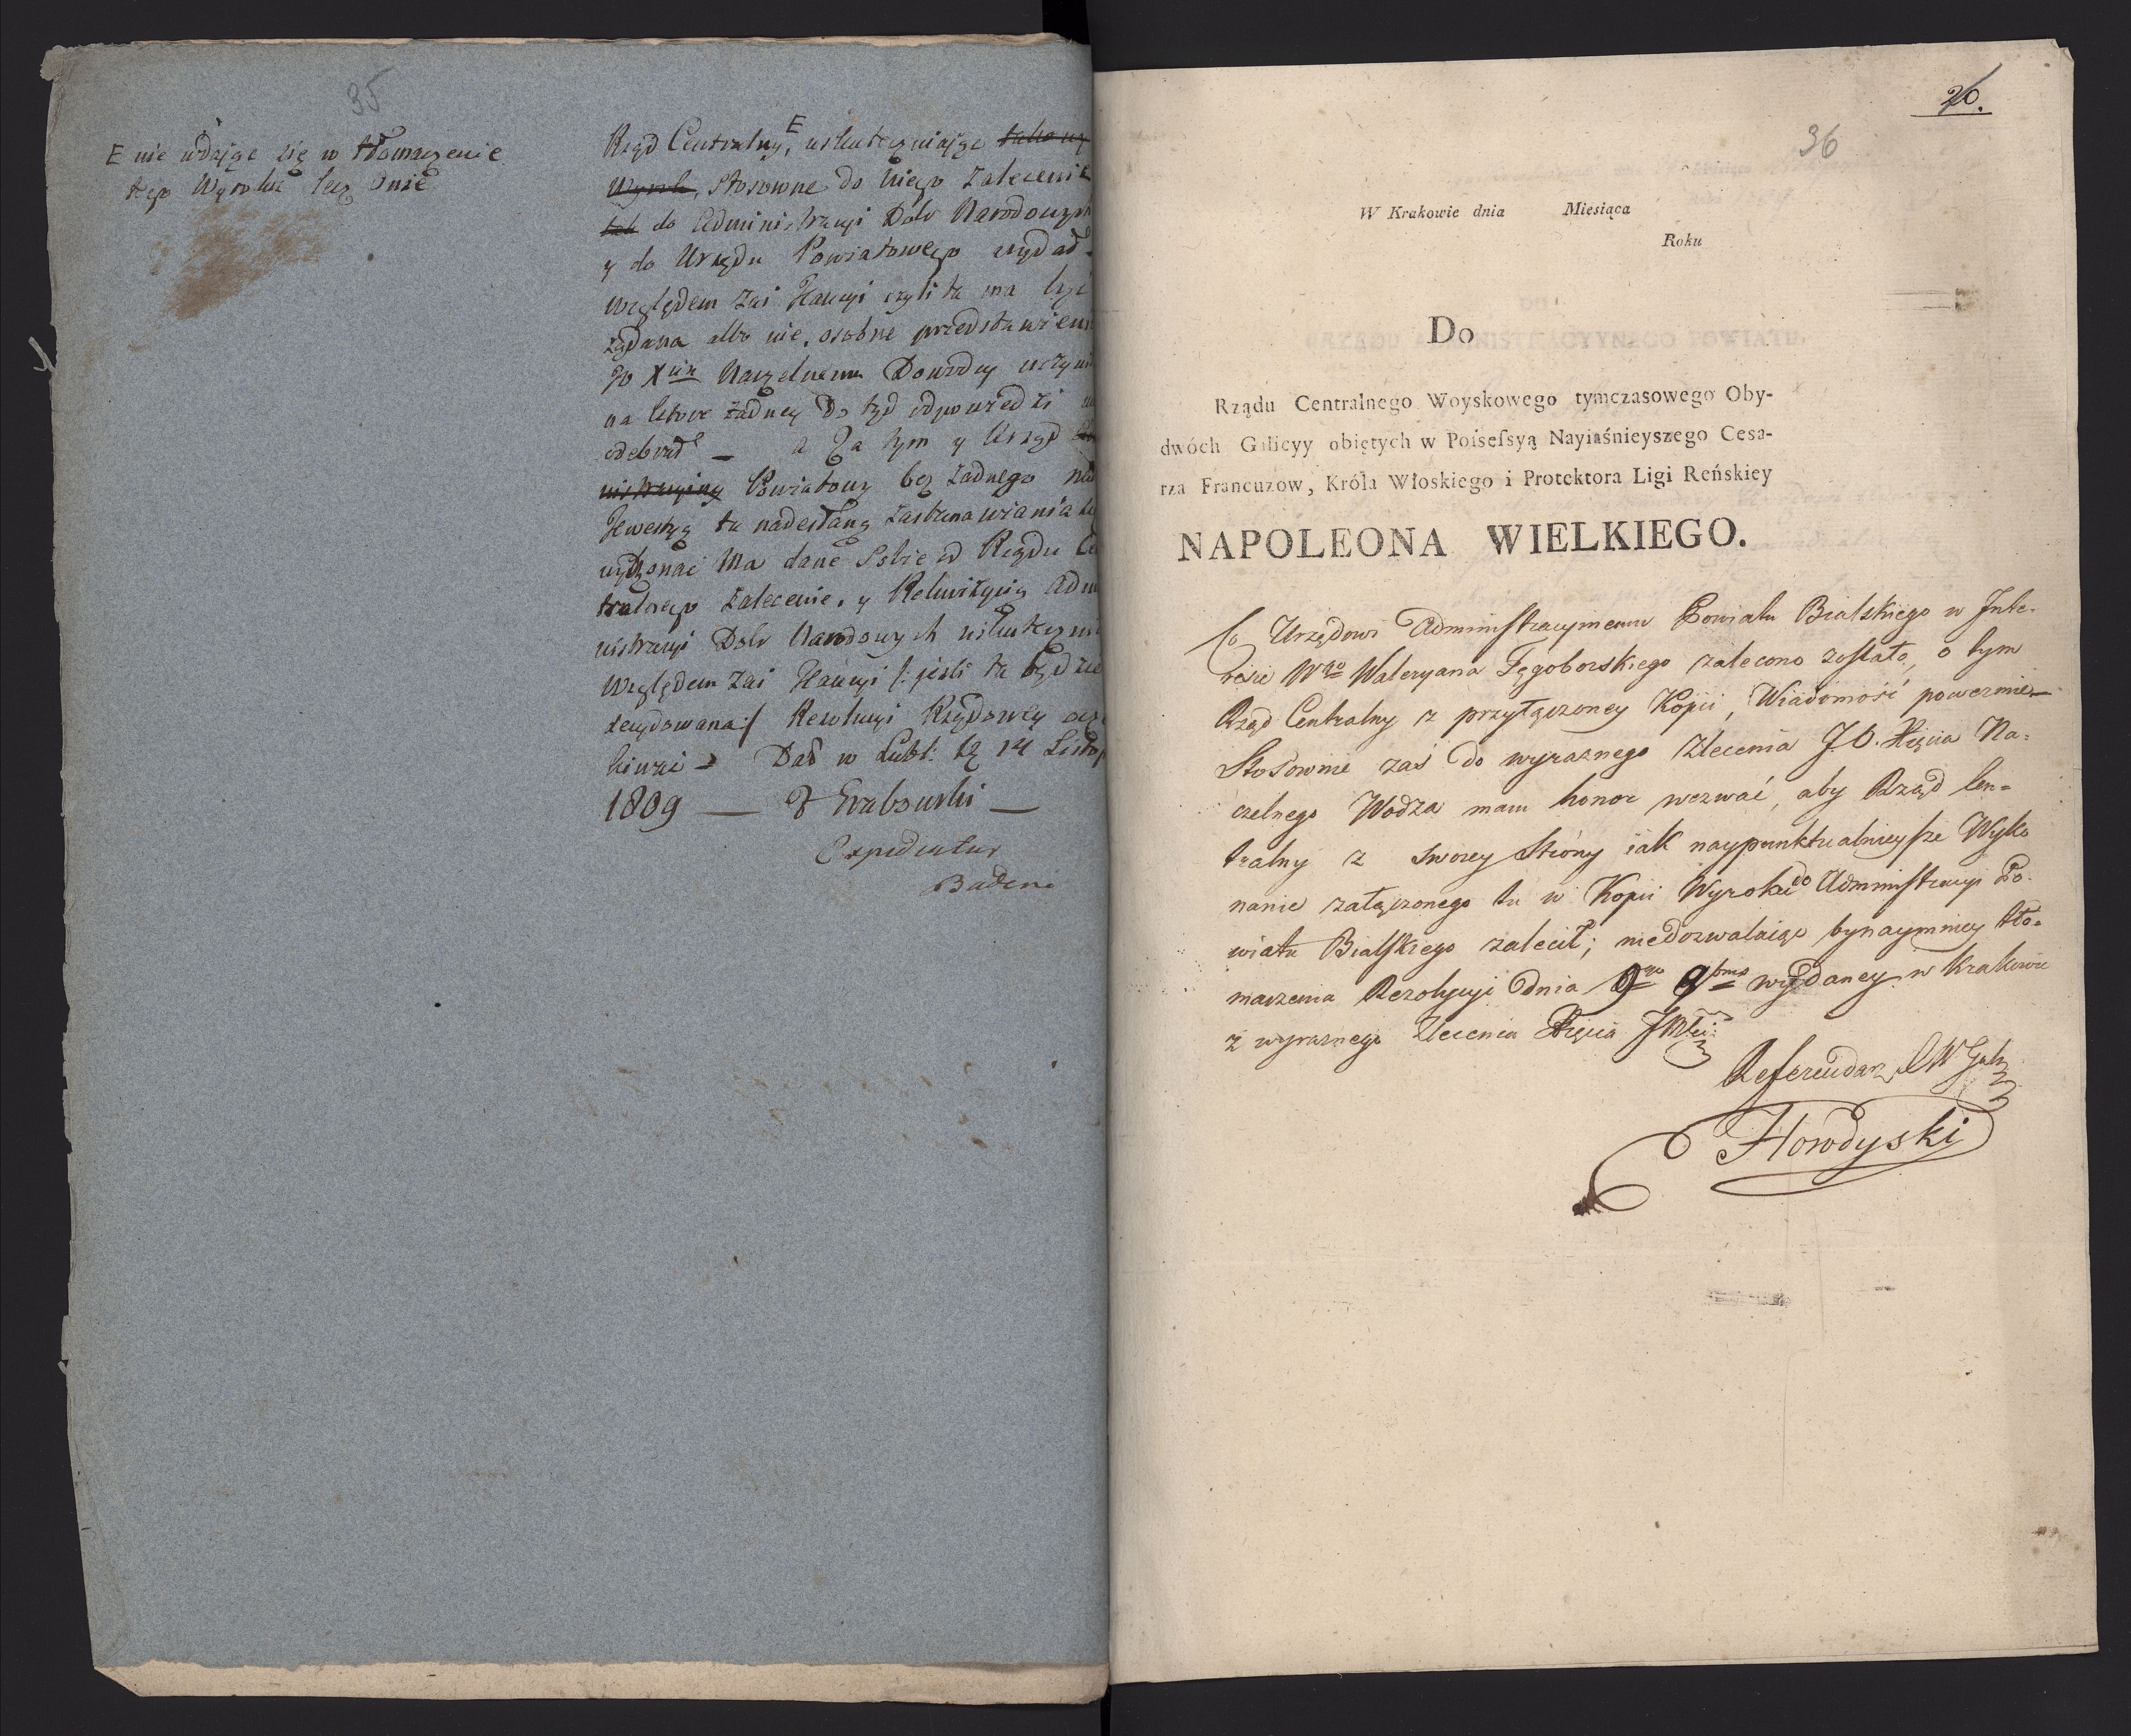 35
E nie wdając się w tłomaczenie
tego Wyroku lecz Onie
Rząd Centralny, E uskuteczniając takowy
Wyrok, stosowne do niego Zalecenie
tak do Administracyi Dóbr Narodowych
y do Urzędu Powiatowego wydał
Względem zaś Kaucyi czyli ta ma być
żądana albo nie, osobne przedstawienie
JO Xciu Naczelnemu Dowodcy uczynił
na które żadney do tąd odpowiedzi
odebrał — a Za tym y Urząd
Powiatowy bez żadnego
Kwestyą tu nadesłaną zastanawiania
wykonać Ma dane Sobie od Rządu Cen
tralnego zalecenie, y Rekwizycyą Admi
nistracyi Dobr Narodowych uskutecznić
Względem zaś Kaucyi /: jeśli ta będzie
decydowana :/ Rezolucyi Rządowey ocze
kiwać — Dat w Lubl: d 14 Listop
1809 — F Grabowski —
Expediatur
Badeni
26.
36
W Krakowie dnia Miesiąca
Roku
Do
Rządu Centralnego Woyskowego tymczasowego Oby-
dwóch Galicyy obiętych w Poisefsyą Nayiaśnieyszego Cesa-
rza Francuzow, Króla Włoskiego i Protektora Ligi Reńskiey
NAPOLEONA WIELKIEGO.
Co Urzędowi Administracyinemu Powiatu Bialskiego w Inte-
resie Wgo Waleryana Tęgoborskiego zalecono zostało, o tym
Rząd Centralny z przyłączoney Kopii, Wiadomość powezmie —
Stosownie zaś do wyraznego Zlecenia J.O. Xięcia Na-
czelnego Wodza mam honor wezwać, aby Rząd Cen-
tralny z swoiey Strony iak naypunktualnieysze Wyko
nanie załączonego tu w Kopii Wyroku do Administracyi Po-
wiatu Bialskiego zalecił; niedozwalaiąc bynaymniey tło-
maczenia Rezolucyi dnia 9go 9bra wydaney w Krakowie
z wyraznego Zlecenia Xięcia JMści
Referendarz
Howdyski